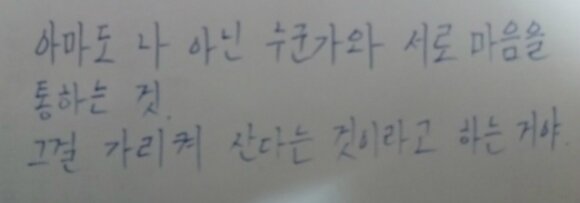 아마도 나 아닌 누군가와 서로 마음을
통하는 것.
그걸 가리켜 산다는 것이라고 하는 거야.